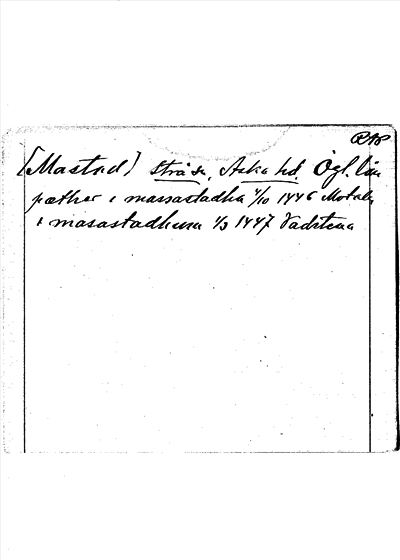 RAP
[Mastad] Stråsn, Aska hd. Ögl. län
pæther i massastadha 4/10 1446 Motala
i masastadhum 1/3 1447 Vadstena